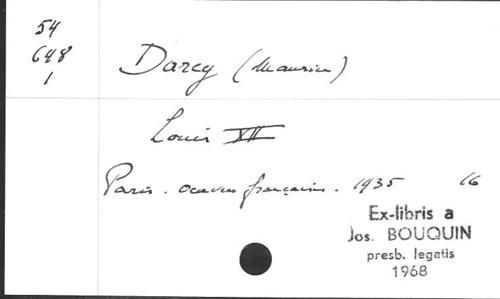 54
648
1
Darcy (Maurice)
Louis XII
Paris. oeuvres françaises. 1935 16
Ex-libris a
Jos. BOUQUIN
presb. legatis
1968